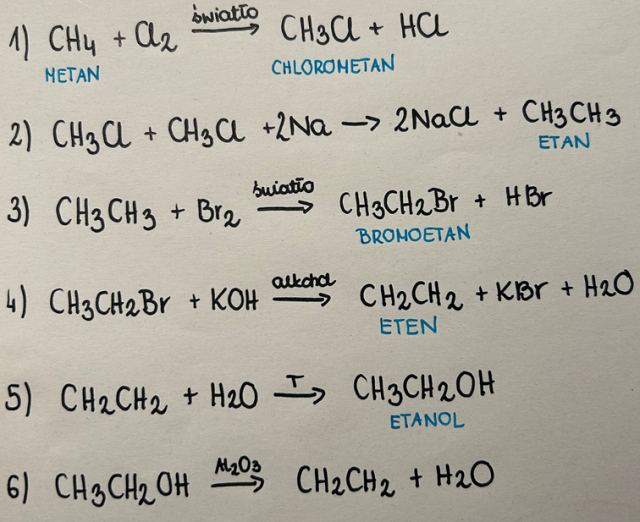 1) CH4 + Cl2 światło → CH3Cl + HCl
METAN CHLOROMETAN
2) CH3Cl + CH3Cl +2Na → 2NaCl + CH3CH3
ETAN
3) CH3CH3 + Br2 światło → CH3CH2Br + HBr
BROMOETAN
4) CH3CH2Br + KOH alkohol → CH2CH2 + KBr + H2O
ETEN
5) CH2CH2 + H2O T → CH3CH2OH
ETANOL
6) CH3CH2OH Al2O3 → CH2CH2 + H2O